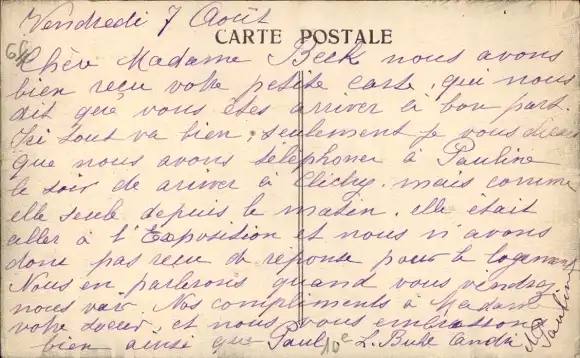 Vendredi 7 Août
CARTE POSTALE
Chère Madame Beck nous avons
bien reçu votre petite carte, qui nous
dit que vous êtes arriver à bon part.
Ici tout va bien, seulement je vous dirai
que nous avons téléphoner à Pauline
le soir de ariver à Clichy. mais comme
elle seule depuis le matin. elle était
aller à l'Exposition et nous n'avons
donc pas reçu de réponse pour le logement
Nous en parlerons quand vous viendrez
nous voir. Nos compliments à Madame
votre soeur, et nous vous embrassons
bien ainsi que Paul